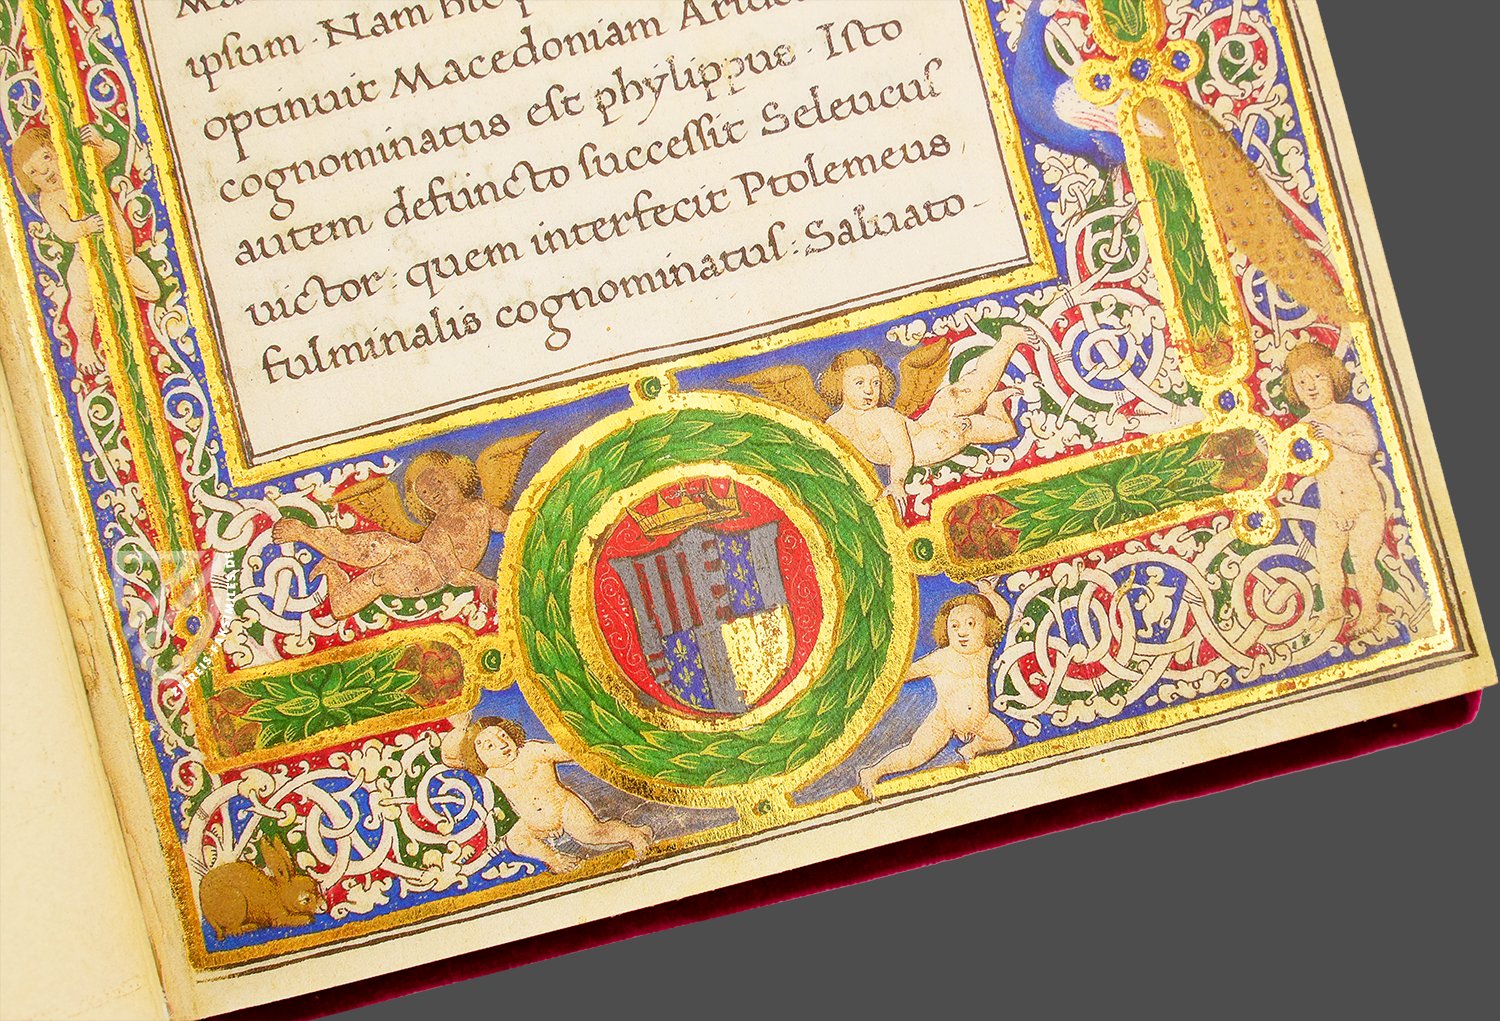 ipsum · Nam hic
optinuit Macedoniam
cognominatus est phylippus · Isto
autem defuncto successit Seleucus
victor · quem interfecit Ptolemeus ·
fulminalis cognominatus : Saluato -